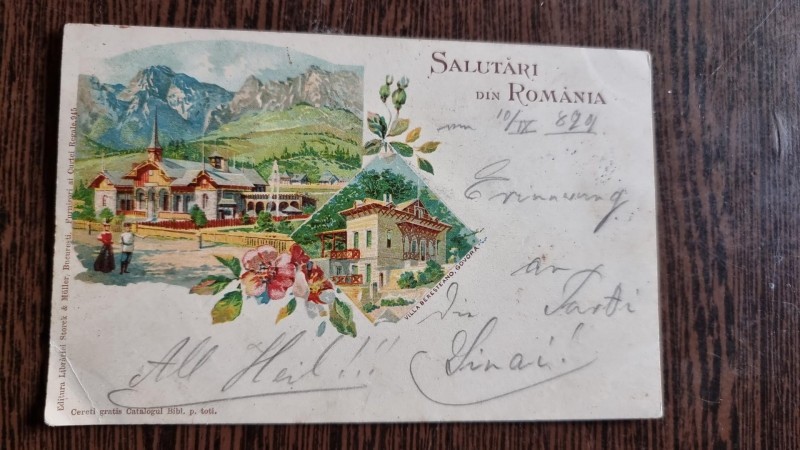 SALUTĂRI
DIN ROMÂNIA
10/IX 899
Erinnerung
an
die
Sinai!
All Heil!!!
VILLA BERESTEANO, GOVORA
Editura Librăriei Storck & Müller, Bucuresti, Furnisori ai Curței Regale. 915
Cereti gratis Catalogul Bibl. p. toti.